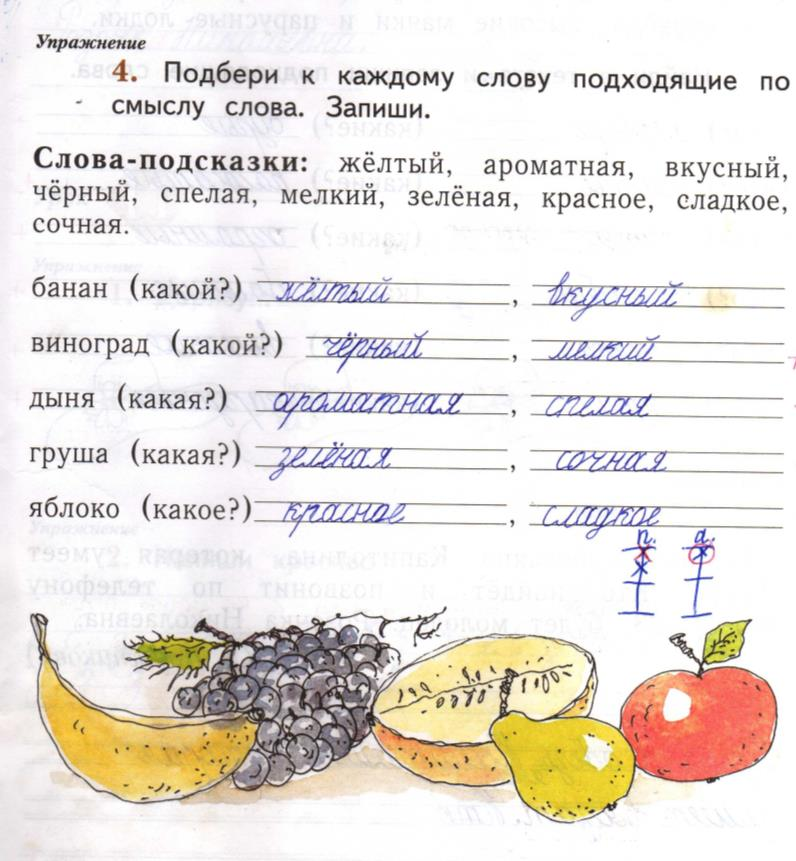 Упражнение
4. Подбери к каждому слову подходящие по
смыслу слова. Запиши.
Слова-подсказки: жёлтый, ароматная, вкусный,
чёрный, спелая, мелкий, зелёная, красное, сладкое,
сочная.
банан (какой?) жёлтый, вкусный
виноград (какой?) чёрный, мелкий
дыня (какая?) ароматная, спелая
груша (какая?) зелёная, сочная
яблоко (какое?) красное, сладкое
п. а.